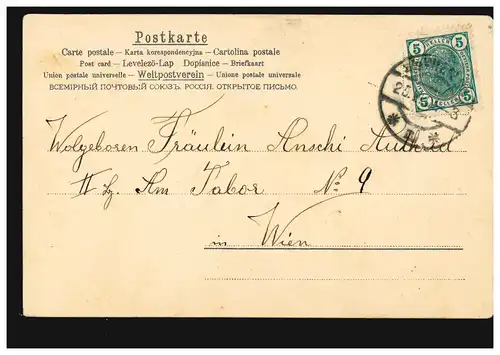 Postkarte
Carte postale – Karta korespondencyjna – Cartolina postale
Post card – Levelező-Lap Dopisnice – Briefkaart
Union postale universelle – Weltpostverein – Unione postale universale
ВСЕМІРНЫЙ ПОЧТОВЫЙ СОЮЗЪ. РОССІЯ. ОТКРЫТОЕ ПИСЬМО.
5 HELLER 5
5 HELLER 5
Wolgeboren Fräulein Anschi
II Bz. Am Tabor No. 9
in Wien